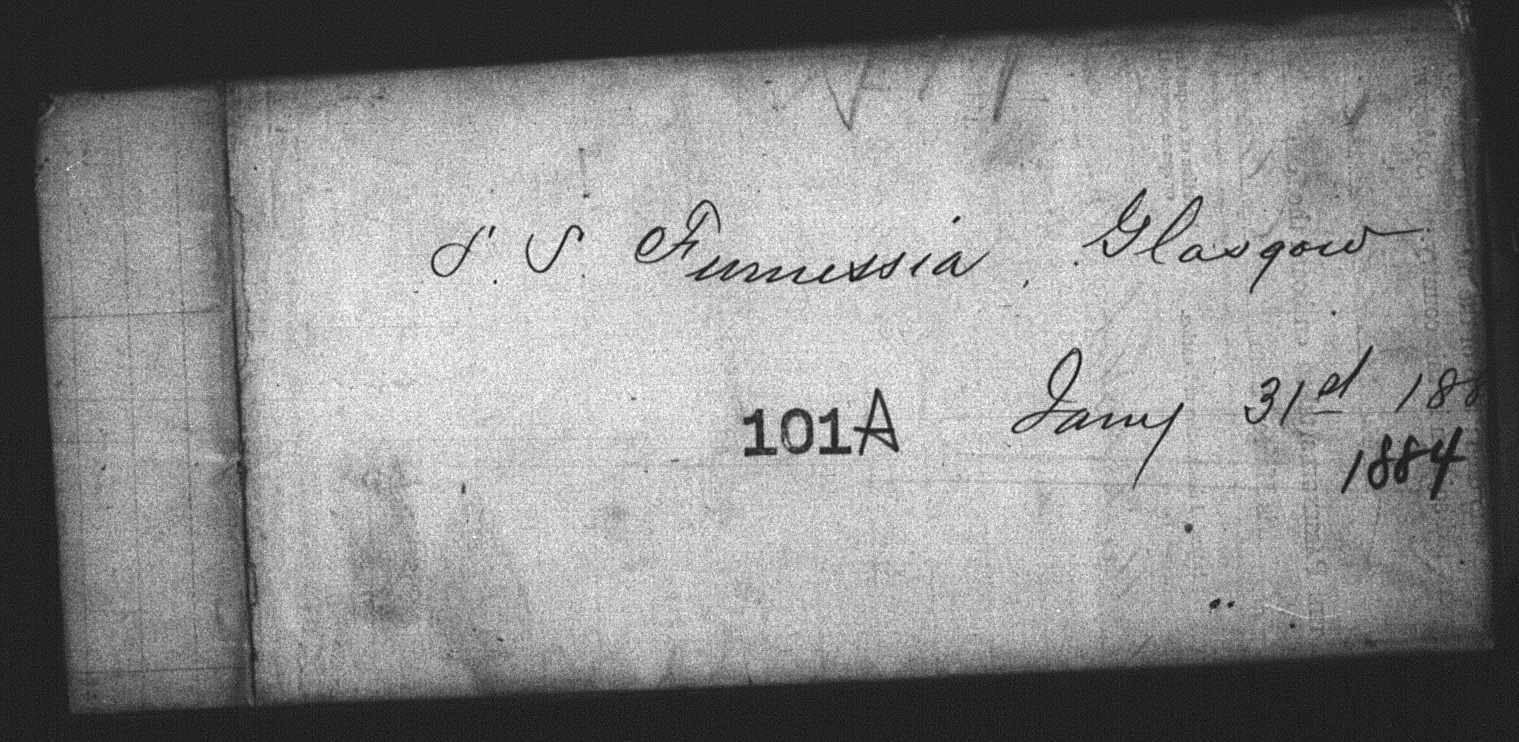 S. S. Furnessia, Glasgow
101A Jany 31d 188
1884